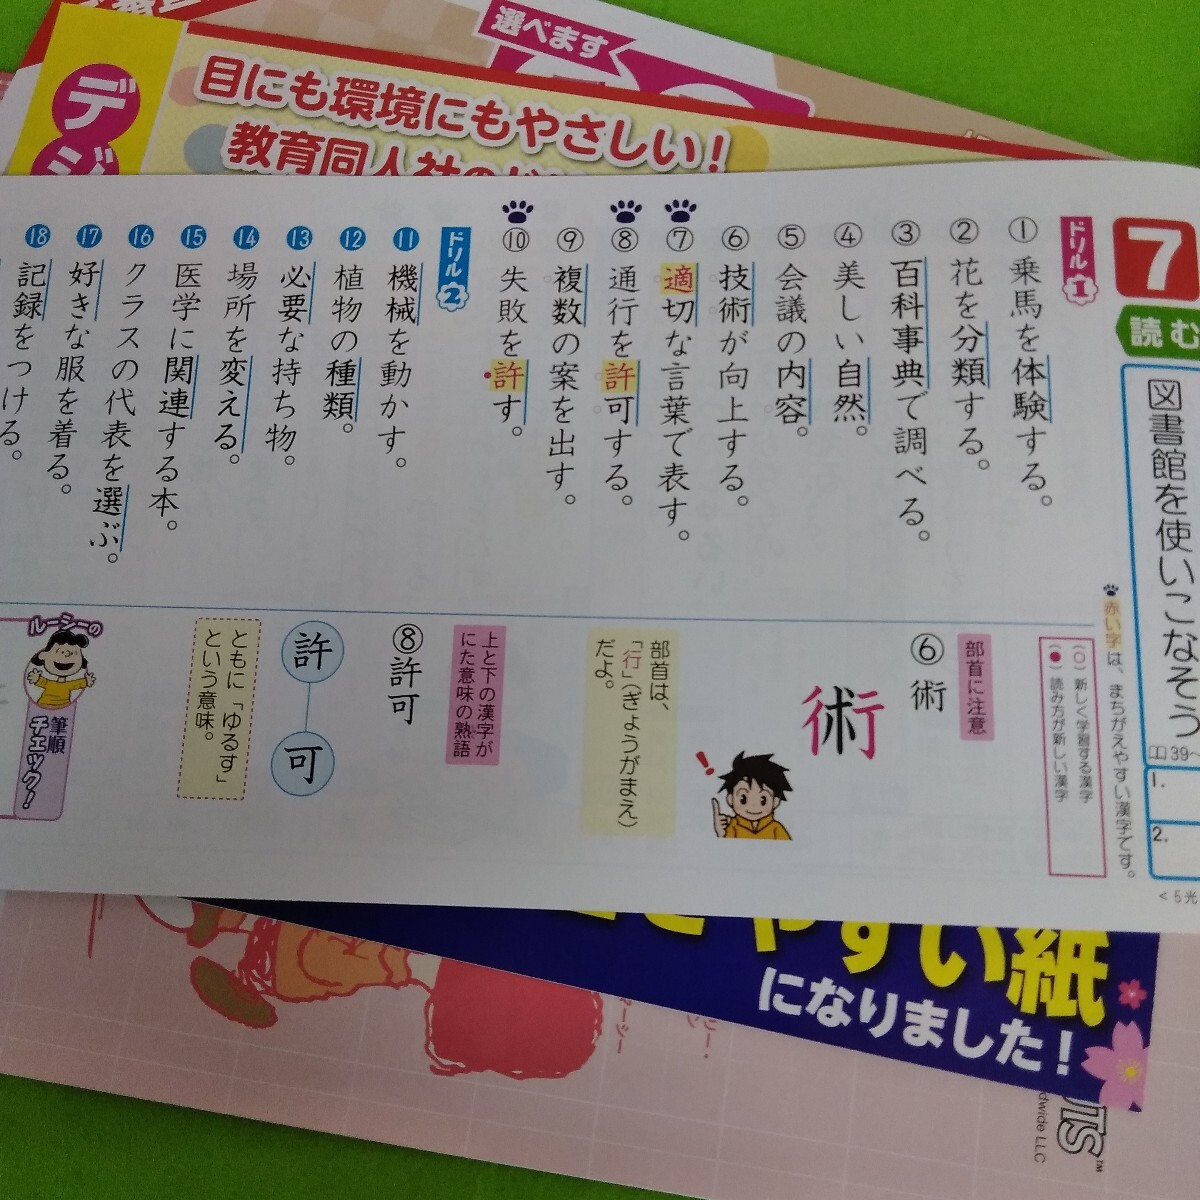 選べます
デジ
目にも環境にもやさしい！
教育同人社の
7
読む
図書館を使いこなそう
39～
1.
2.
<5光
ドリル1
①乗馬を体験する。
②花を分類する。
③百科事典で調べる。
④美しい自然。
⑤会議の内容。
⑥技術が向上する。
⑦適切な言葉で表す。
⑧通行を許可する。
⑨複数の案を出す。
⑩失敗を許す。
ドリル2
⑪機械を動かす。
⑫植物の種類。
⑬必要な持ち物。
⑭場所を変える。
⑮医学に関連する本。
⑯クラスの代表を選ぶ。
⑰好きな服を着る。
⑱記録をつける。
赤い字は、まちがえやすい漢字です。
(○)新しく学習する漢字
(●)読み方が新しい漢字
部首に注意
⑥術
術
部首は、
「行」(ぎょうがまえ)
だよ。
上と下の漢字が
にた意味の熟語
⑧許可
許
可
ともに「ゆるす」
という意味。
ルーシーの
筆順
チェック！
やすい紙
になりました！
dwide LLC